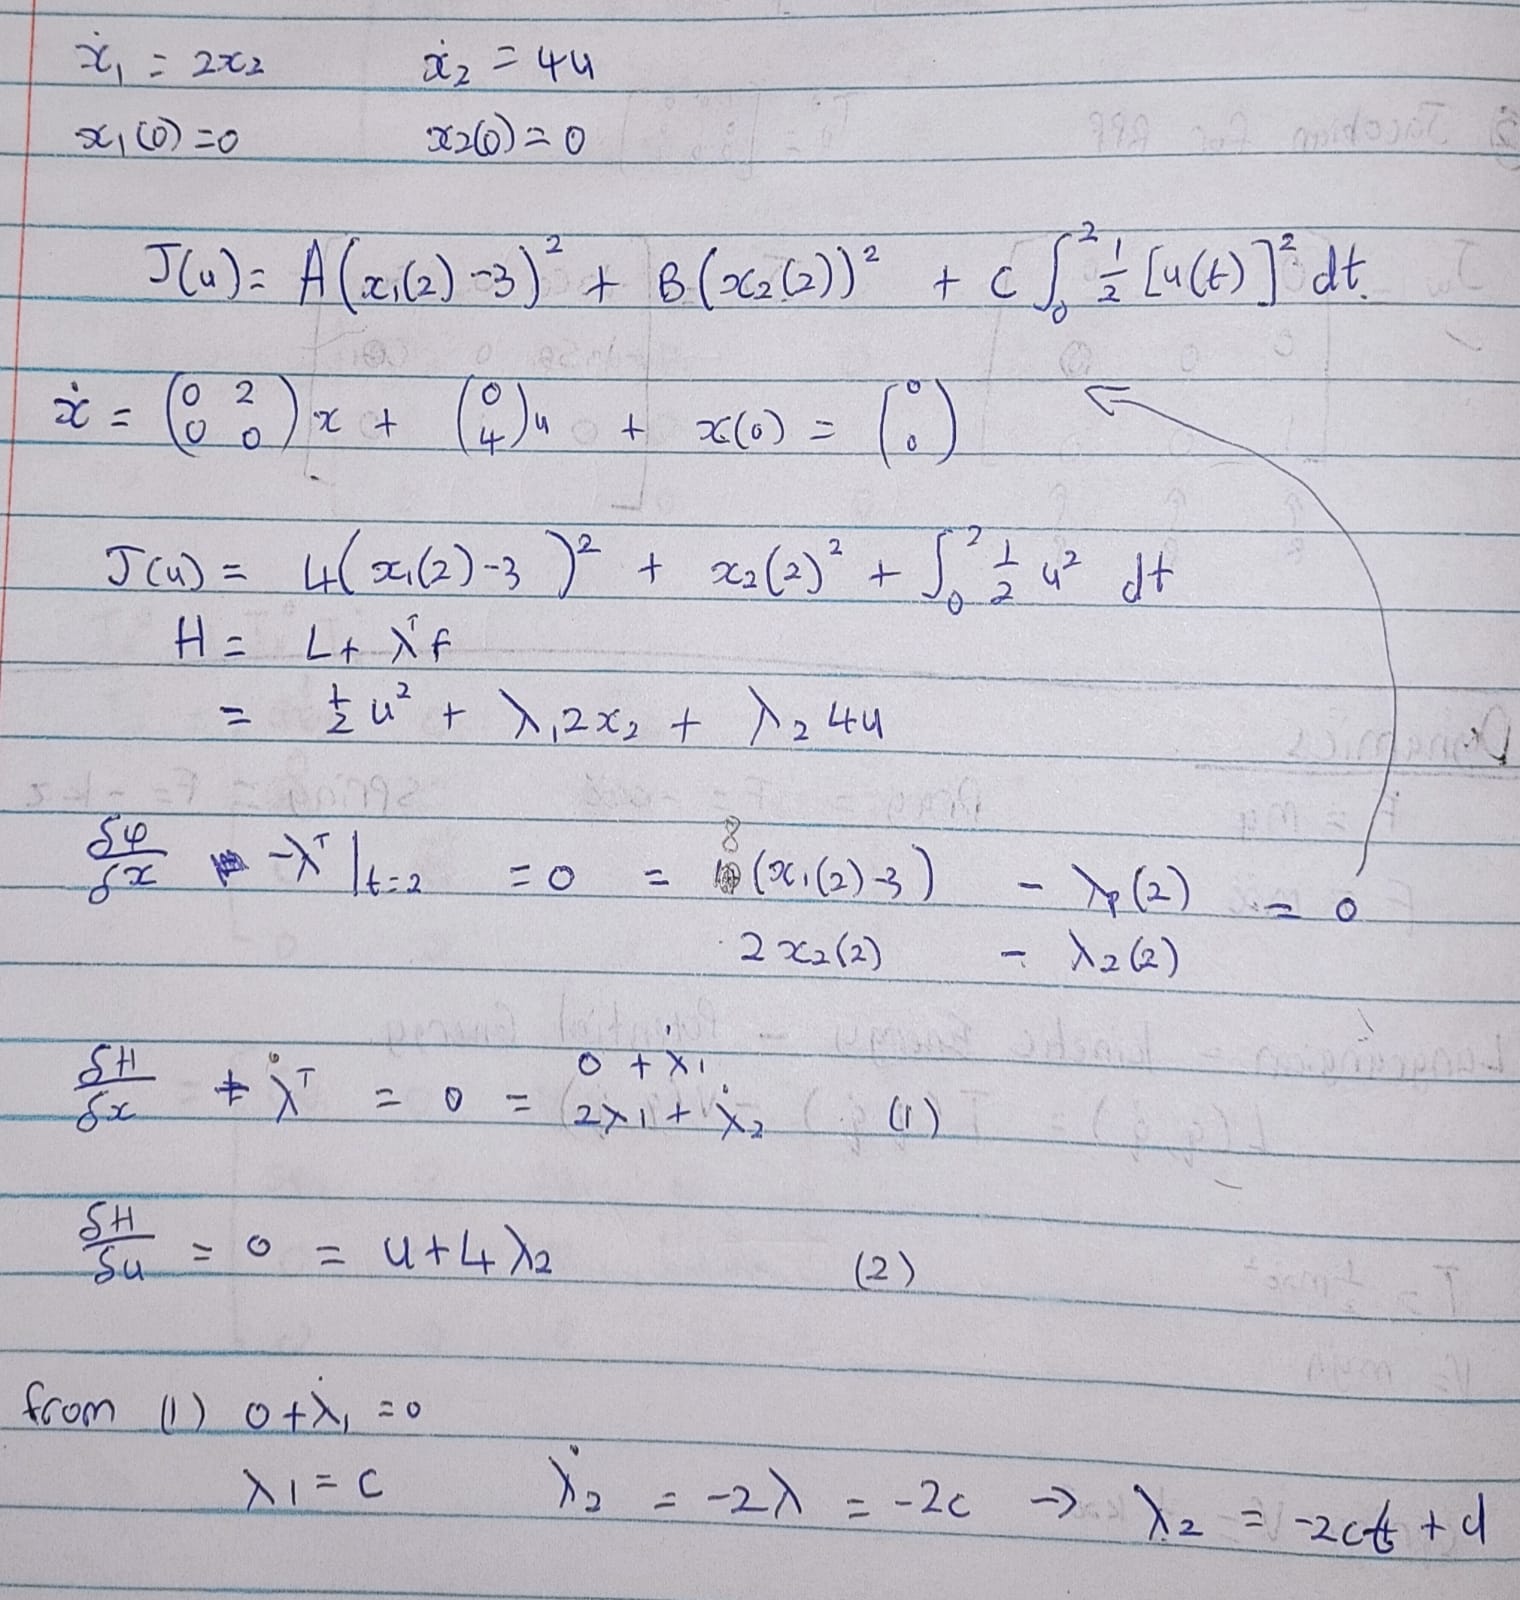 ẋ₁ = 2x₂ ẋ₂ = 4u
x₁(0) = 0 x₂(0) = 0
J(u) = A(x₁(2) - 3)² + B(x₂(2))² + C ∫₀² ½ [u(t)]² dt.
ẋ = (0 2; 0 0) x + (0; 4) u + x(0) = (0; 0)
J(u) = 4(x₁(2) - 3)² + x₂(2)² + ∫₀² ½ u² dt
H = L + λᵀf
= ½ u² + λ₁2x₂ + λ₂4u
δφ/δx - λᵀ|t=2 = 0 = 8(x₁(2) - 3) - λ₁(2) = 0
2x₂(2) - λ₂(2)
δH/δx + λ̇ᵀ = 0 = 0 + λ̇₁
2λ₁ + λ̇₂ (1)
δH/δu = 0 = u + 4λ₂ (2)
from (1) 0 + λ̇₁ = 0
λ₁ = c λ̇₂ = -2λ = -2c → λ₂ = -2ct + d